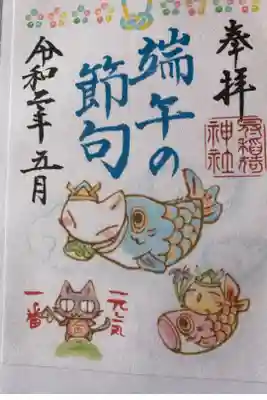 奉拝
神社
端午の
節句
令和二年五月
元気
一番